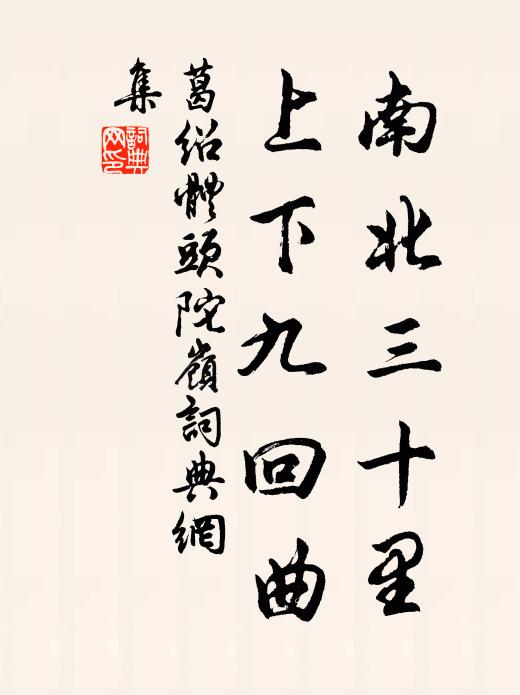 南北三十里
上下九回曲
葛绍體頭陀嶺詞典網
集
詞典網印